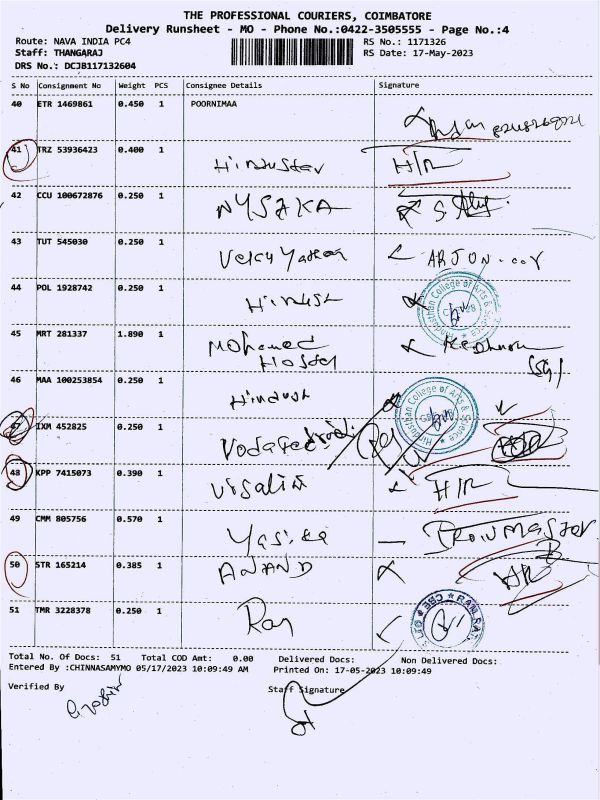 THE PROFESSIONAL COURIERS, COIMBATORE
Delivery Runsheet - MO - Phone No.:0422-3505555 - Page No.:4
Route: NAVA INDIA PC4
RS No.: 1171326
Staff: THANGARAJ
RS Date: 17-May-2023
DRS No.: DCJB117132604
S No Consignment No Weight PCS Consignee Details Signature
40 ETR 1469861 0.450 1 POORNIMAA
41 TRZ 53936423 0.400 1 Hindustan H/R
42 CCU 100672876 0.250 1 NYSAKA
43 TUT 545030 0.250 1 ARJUN
44 POL 1928742 0.250 1 Hindust
Hindusthan College of Arts & Science
45 MRT 281337 1.890 1 Mohamed
Hostel
46 MAA 100253854 0.250 1 Hindush
Hindusthan College of Arts & Science
47 IXM 452825 0.250 1
48 KPP 7415073 0.390 1 Visalini H/R
49 CMM 805756 0.570 1
50 STR 165214 0.385 1 ANAND
51 TMR 3228378 0.250 1 Ram
Total No. Of Docs: 51 Total COD Amt: 0.00 Delivered Docs: Non Delivered Docs:
Entered By :CHINNASAMYMO 05/17/2023 10:09:49 AM Printed On: 17-05-2023 10:09:49
Verified By
Staff Signature